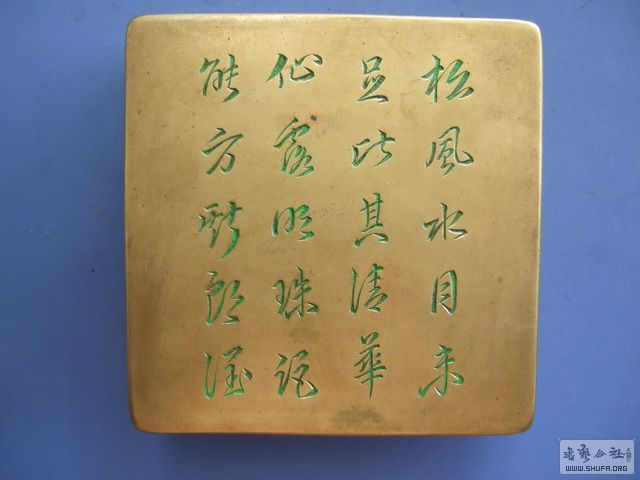 松風水月未
足比其清華
仙露明珠詎
能方斯朗潤
書藝公社
WWW.SHUFA.ORG